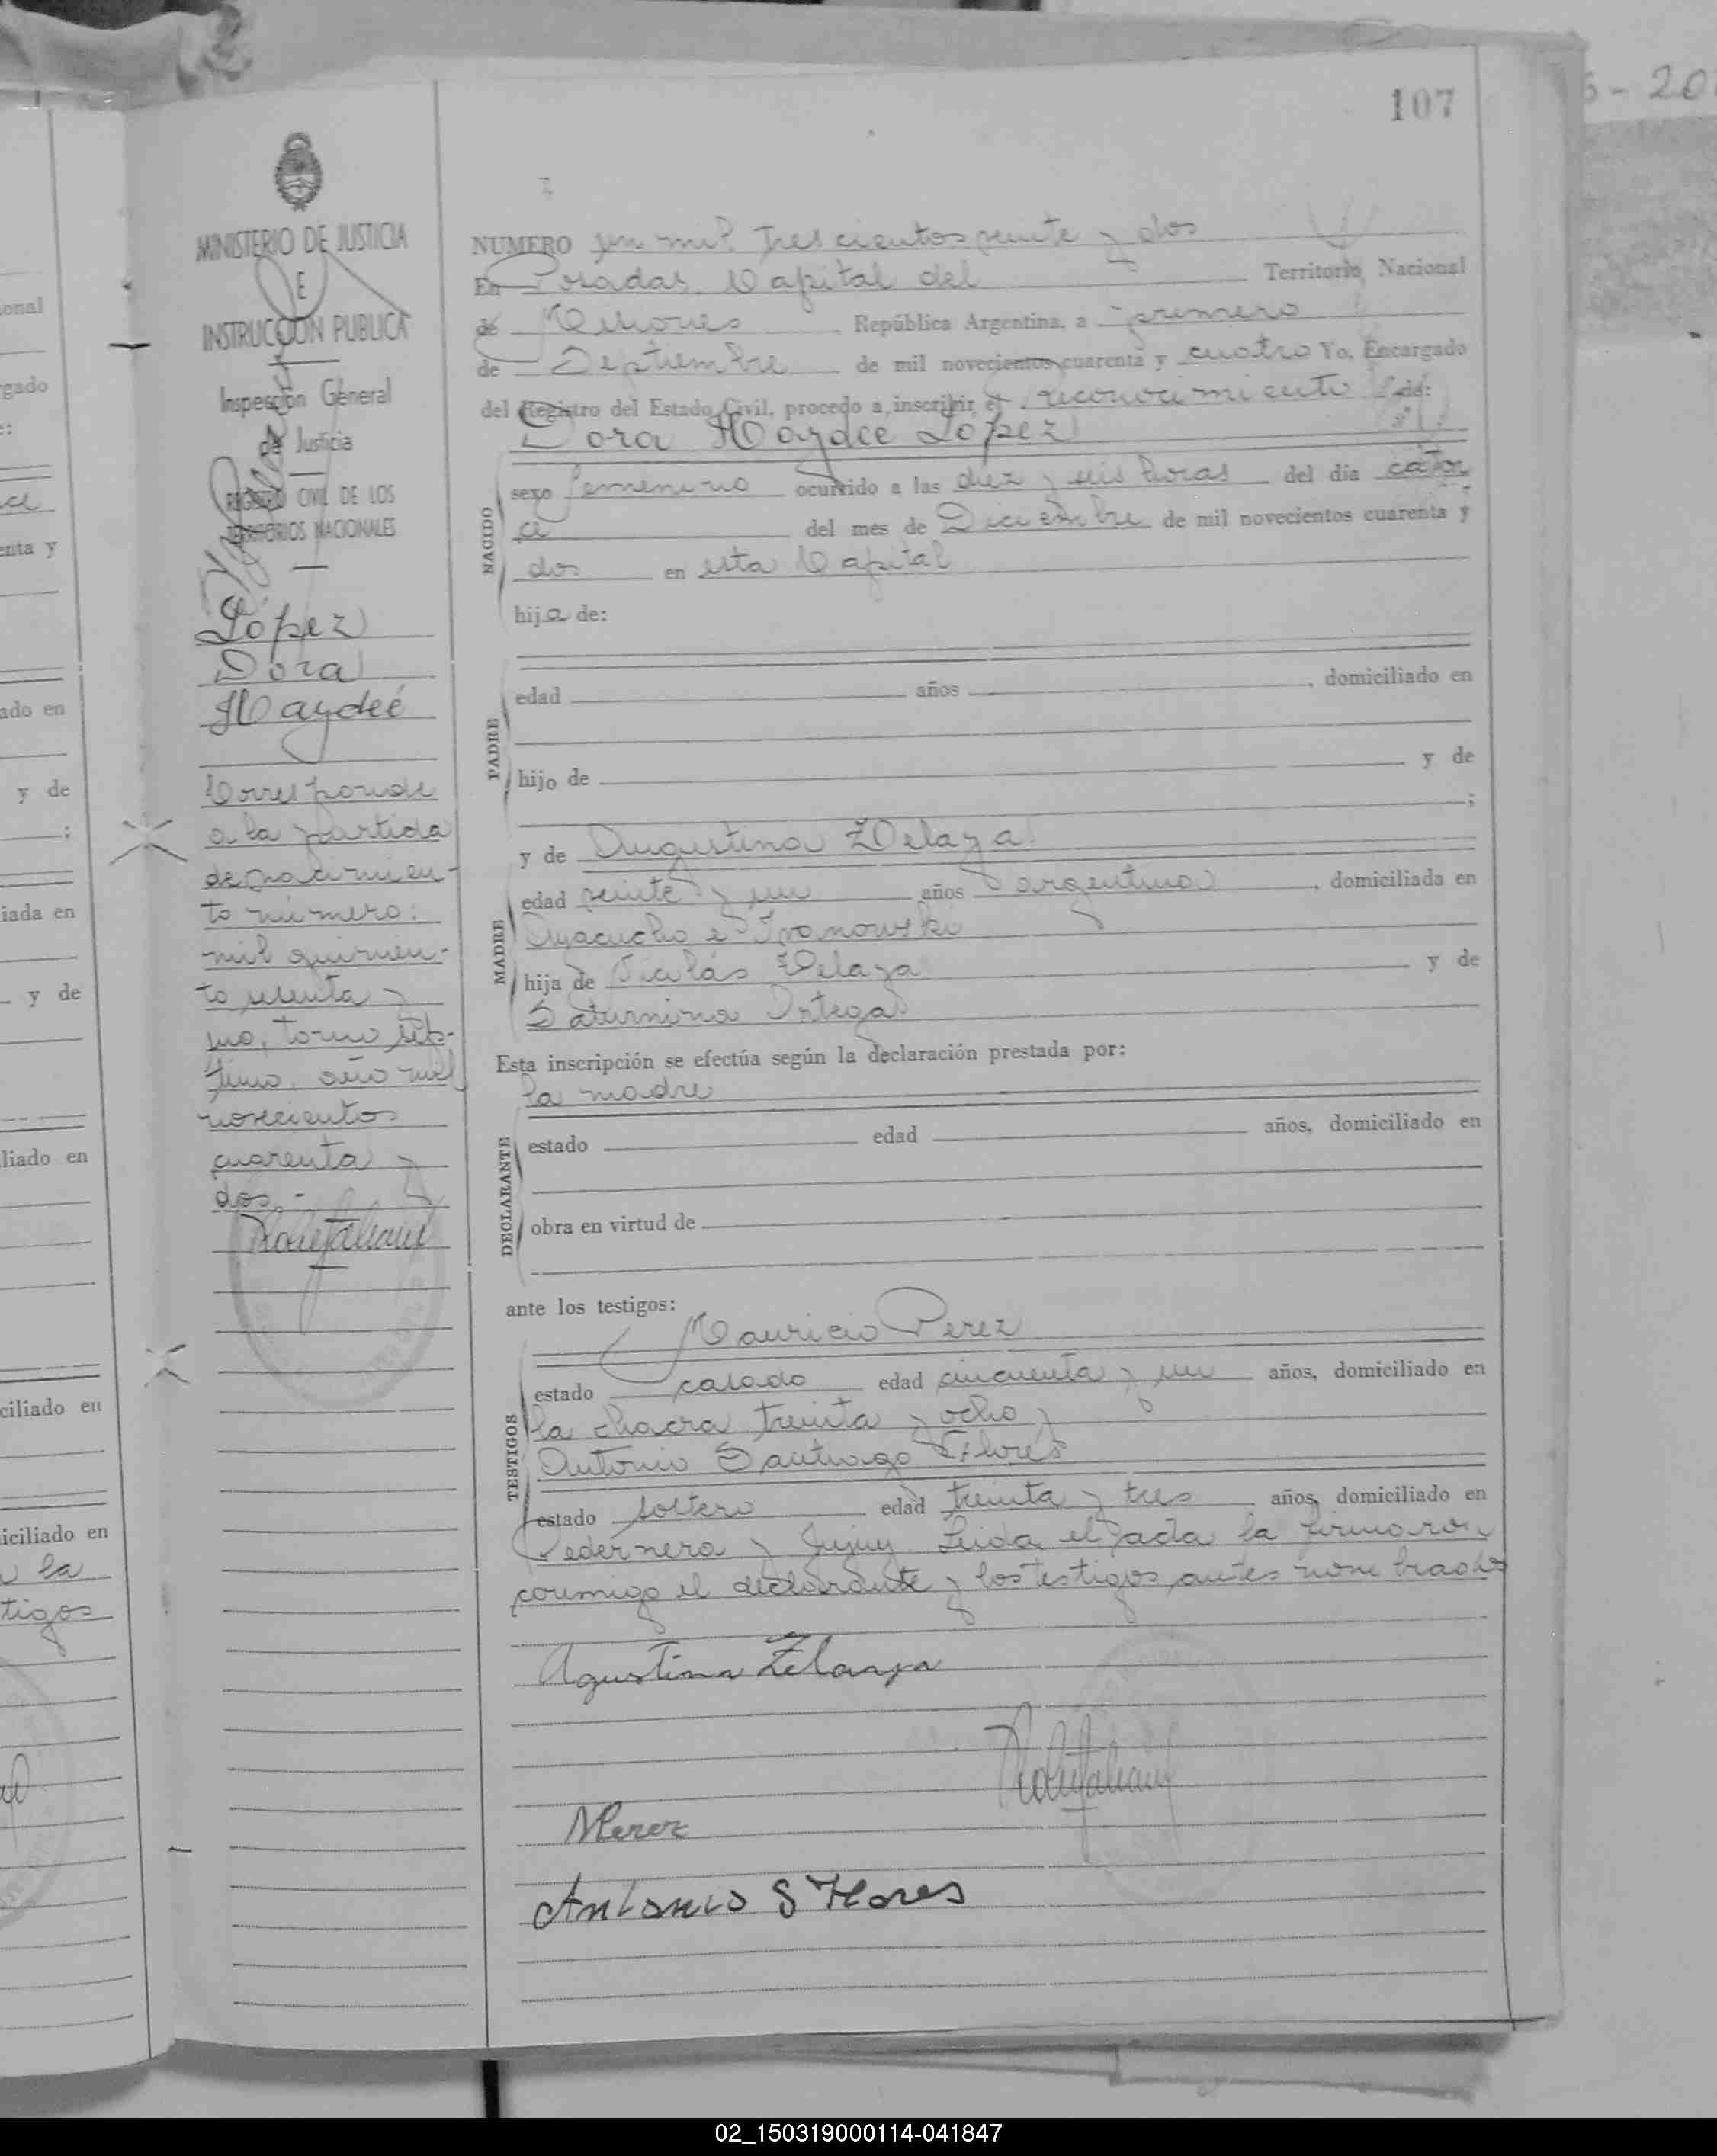 107
MINISTERIO DE JUSTICIA
E
INSTRUCCION PUBLICA
Inspección General
de Justicia
REGISTRO CIVIL DE LOS
TERRITORIOS NACIONALES
López
Dora
Haydeé
Corresponde
a la partida
de nacimien-
to número:
mil quinien-
to sesenta y
uno, tomo sép-
timo, año mil
novecientos
cuarenta y
dos.-
NUMERO un mil trescientos veinte y dos
En Posadas, Capital del Territorio Nacional
de Misiones República Argentina, a primero
de Septiembre de mil novecientos cuarenta y cuatro Yo, Encargado
del Registro del Estado Civil, procedo a inscribir el reconocimiento de:
Dora Haydee López
NACIDO
sexo femenino ocurrido a las diez y seis horas del día cator
ce del mes de Diciembre de mil novecientos cuarenta y
dos en esta Capital
hija de:
PADRE
edad años , domiciliado en
hijo de y de
;
y de Augustina Zelaya
MADRE
edad veinte y un años argentina , domiciliada en
Ayacucho e Ivanowski
hija de Nicolás Zelaya y de
Saturnina Ortega
Esta inscripción se efectúa según la declaración prestada por:
la madre
DECLARANTE
estado edad años, domiciliado en
obra en virtud de
ante los testigos:
Mauricio Perez
TESTIGOS
estado casado edad cincuenta y un años, domiciliado en
la chacra treinta y ocho y
Antonio Santiago Flores
estado soltero edad treinta y tres años, domiciliado en
Pedernera y Jujuy. Leida el acta la firmaron
conmigo el declarante y los testigos antes nombrados
Agustina Zelaya
MPerez
Antonio S Flores
onal
rgado
enta y
ado en
y de
iada en
y de
liado en
ciliado en
iciliado en
la
tigos
02_150319000114-041847